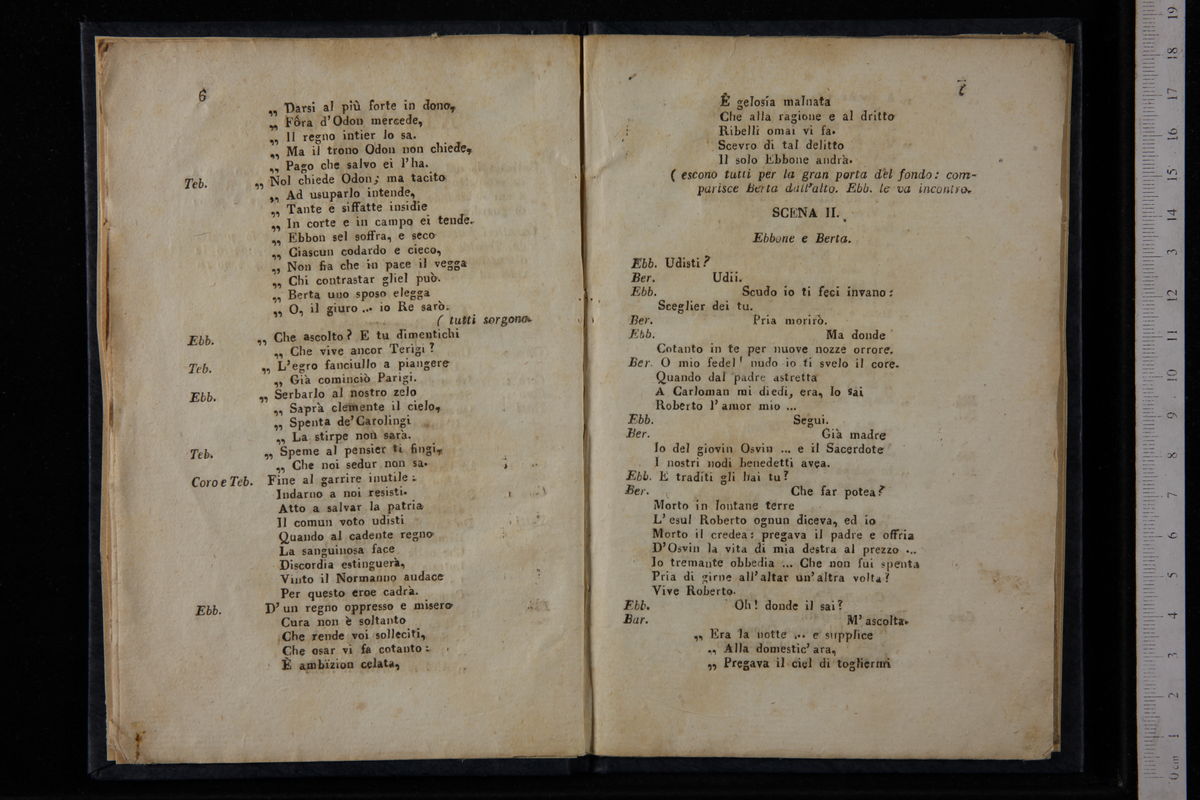 6
„ Darsi al più forte in dono,
„ Fôra d'Odon mercede,
„ Il regno intier lo sa.
„ Ma il trono Odon non chiede,
„ Pago che salvo ei l'ha.
Teb. „ Nol chiede Odon; ma tacito
„ Ad usuparlo intende,
„ Tante e siffatte insidie
„ In corte e in campo ei tende.
„ Ebbon sel soffra, e seco
„ Ciascun codardo e cieco,
„ Non fia che in pace il vegga
„ Chi contrastar gliel può.
„ Berta uno sposo elegga
„ O, il giuro ... io Re sarò.
( tutti sorgono.
Ebb. „ Che ascolto? E tu dimentichi
„ Che vive ancor Terigi?
Teb. „ L'egro fanciullo a piangere
„ Già cominciò Parigi.
Ebb. „ Serbarlo al nostro zelo
„ Saprà clemente il cielo,
„ Spenta de'Carolingi
„ La stirpe non sarà.
Teb. „ Speme al pensier ti fingi,
„ Che noi sedur non sa.
Coro e Teb. Fine al garrire inutile:
Indarno a noi resisti.
Atto a salvar la patria
Il comun voto udisti
Quando al cadente regno
La sanguinosa face
Discordia estinguerà,
Vinto il Normanno audace
Per questo eroe cadrà.
Ebb. D'un regno oppresso e misero
Cura non è soltanto
Che rende voi solleciti,
Che osar vi fa cotanto:
È ambizion celata,
7
È gelosía malnata
Che alla ragione e al dritto
Ribelli omai vi fa.
Scevro di tal delitto
Il solo Ebbone andrà.
( escono tutti per la gran porta del fondo: com-
parisce Berta dall'alto. Ebb. le va incontro.
SCENA II.
Ebbone e Berta.
Ebb. Udisti?
Ber. Udii.
Ebb. Scudo io ti feci invano:
Sceglier dei tu.
Ber. Pria morirò.
Ebb. Ma donde
Cotanto in te per nuove nozze orrore.
Ber. O mio fedel! nudo io ti svelo il core.
Quando dal padre astretta
A Carloman mi diedi, era, lo sai
Roberto l'amor mio ...
Ebb. Segui.
Ber. Già madre
Io del giovin Osvin ... e il Sacerdote
I nostri nodi benedetti avea.
Ebb. E traditi gli hai tu?
Ber. Che far potea?
Morto in lontane terre
L'esul Roberto ognun diceva, ed io
Morto il credea: pregava il padre e offria
D'Osvin la vita di mia destra al prezzo ...
Io tremante obbedia ... Che non fui spenta
Pria di girne all'altar un'altra volta?
Vive Roberto.
Ebb. Oh! donde il sai?
Bar. M'ascolta.
„ Era la notte ... e supplice
„ Alla domestic'ara,
„ Pregava il ciel di togliermi
0 cm 1 2 3 4 5 6 7 8 9 10 11 12 13 14 15 16 17 18 19